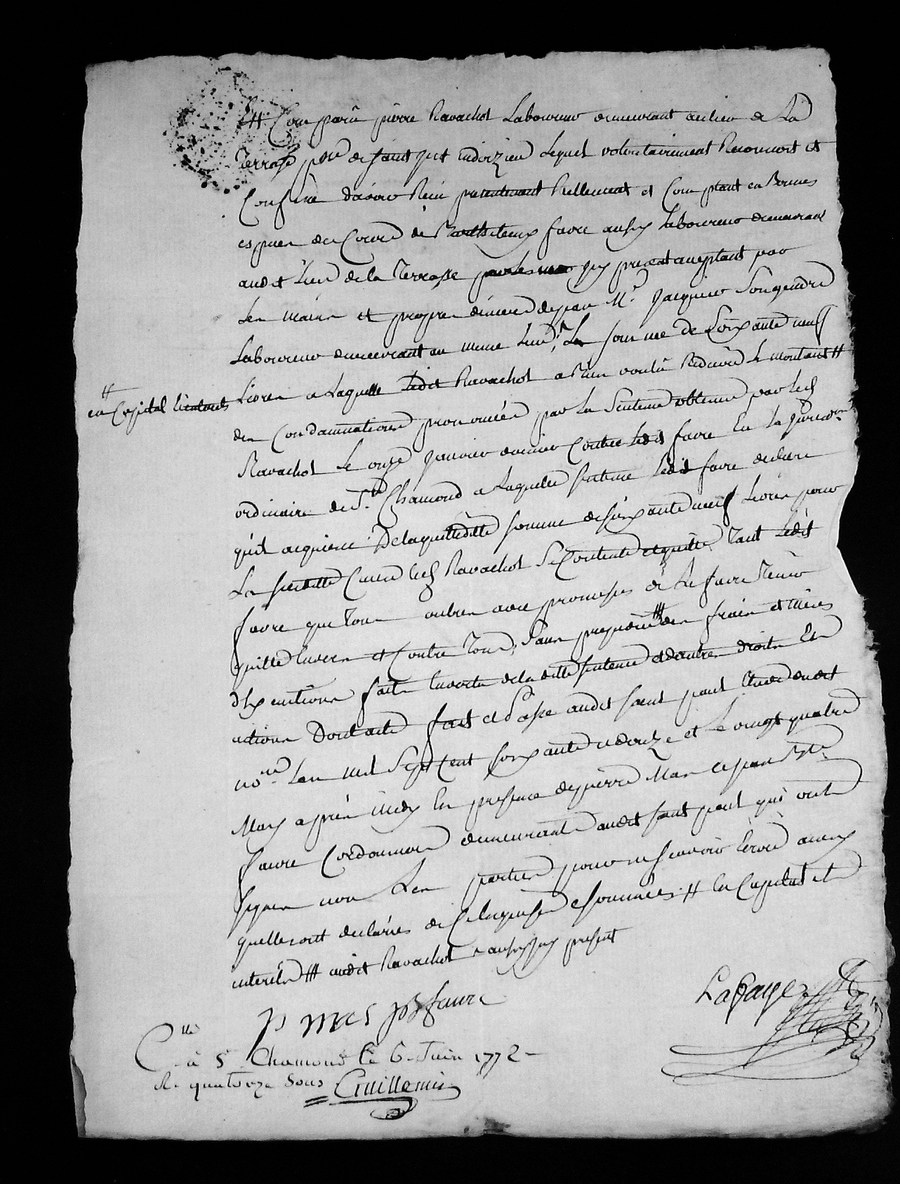 Est Comparu pierre Ravachol Laboureur demeurant au lieu de La
Terrasse psse de saint just Endoizieu Lequel volontairement Reconnoit et
Confesse davoir Recu presentement Réellement et Comptant en Bonnes
espèces du Cours de faure aussy Laboureur demeurant
audit Lieu de la Terrasse icy present acceptant par
Les mains et propres deniers de Mr. Jacques
Laboureur demeurant au meme Lieu, La somme de Soixante neuf
en Capital
Livres a Laquelle Ledit Ravachol a Bien voulû Reduire le montant #
des Condamnations prononcées par la Sentence obtenue par led
Ravachol Le onze Janvier dernier Contre Ledit faure En la Jurisdon
ordinaire de St. Chamond a Laquelle sentence Ledit faure declare
qu'il acquiesce, De laquelle ditte somme de soixante neuf Livres pour
La susditte Cause led Ravachol Se Contente et quitte Tant Ledit
faure que Tous autres avec promesses de Le faire Tenir
quitte Envers et Contre Tous, Sans prejudice # des fraix et mises
d'Executions faits En vertu de la ditte sentence et dautres droits Et
actions Dont acte fait et Passé audit saint paul
nore. Lan mil Sept Cent Soixante et douze et le vingt quatre
May après midy En presence de pierre Mas et jean Bte
faure Cordonnier demeurants audit saint paul qui ont
signé non Les parties pour ne sçavoir Ecrire ainsy
quelles ont declarées de Ce Enquises et sommées, # En Capital et
interets ### audit Ravachol aussy present
p mas jb faure
Lafarge
Clle à St Chamond le 6. Juin 1772 -
R. quatorze sous Guillemin